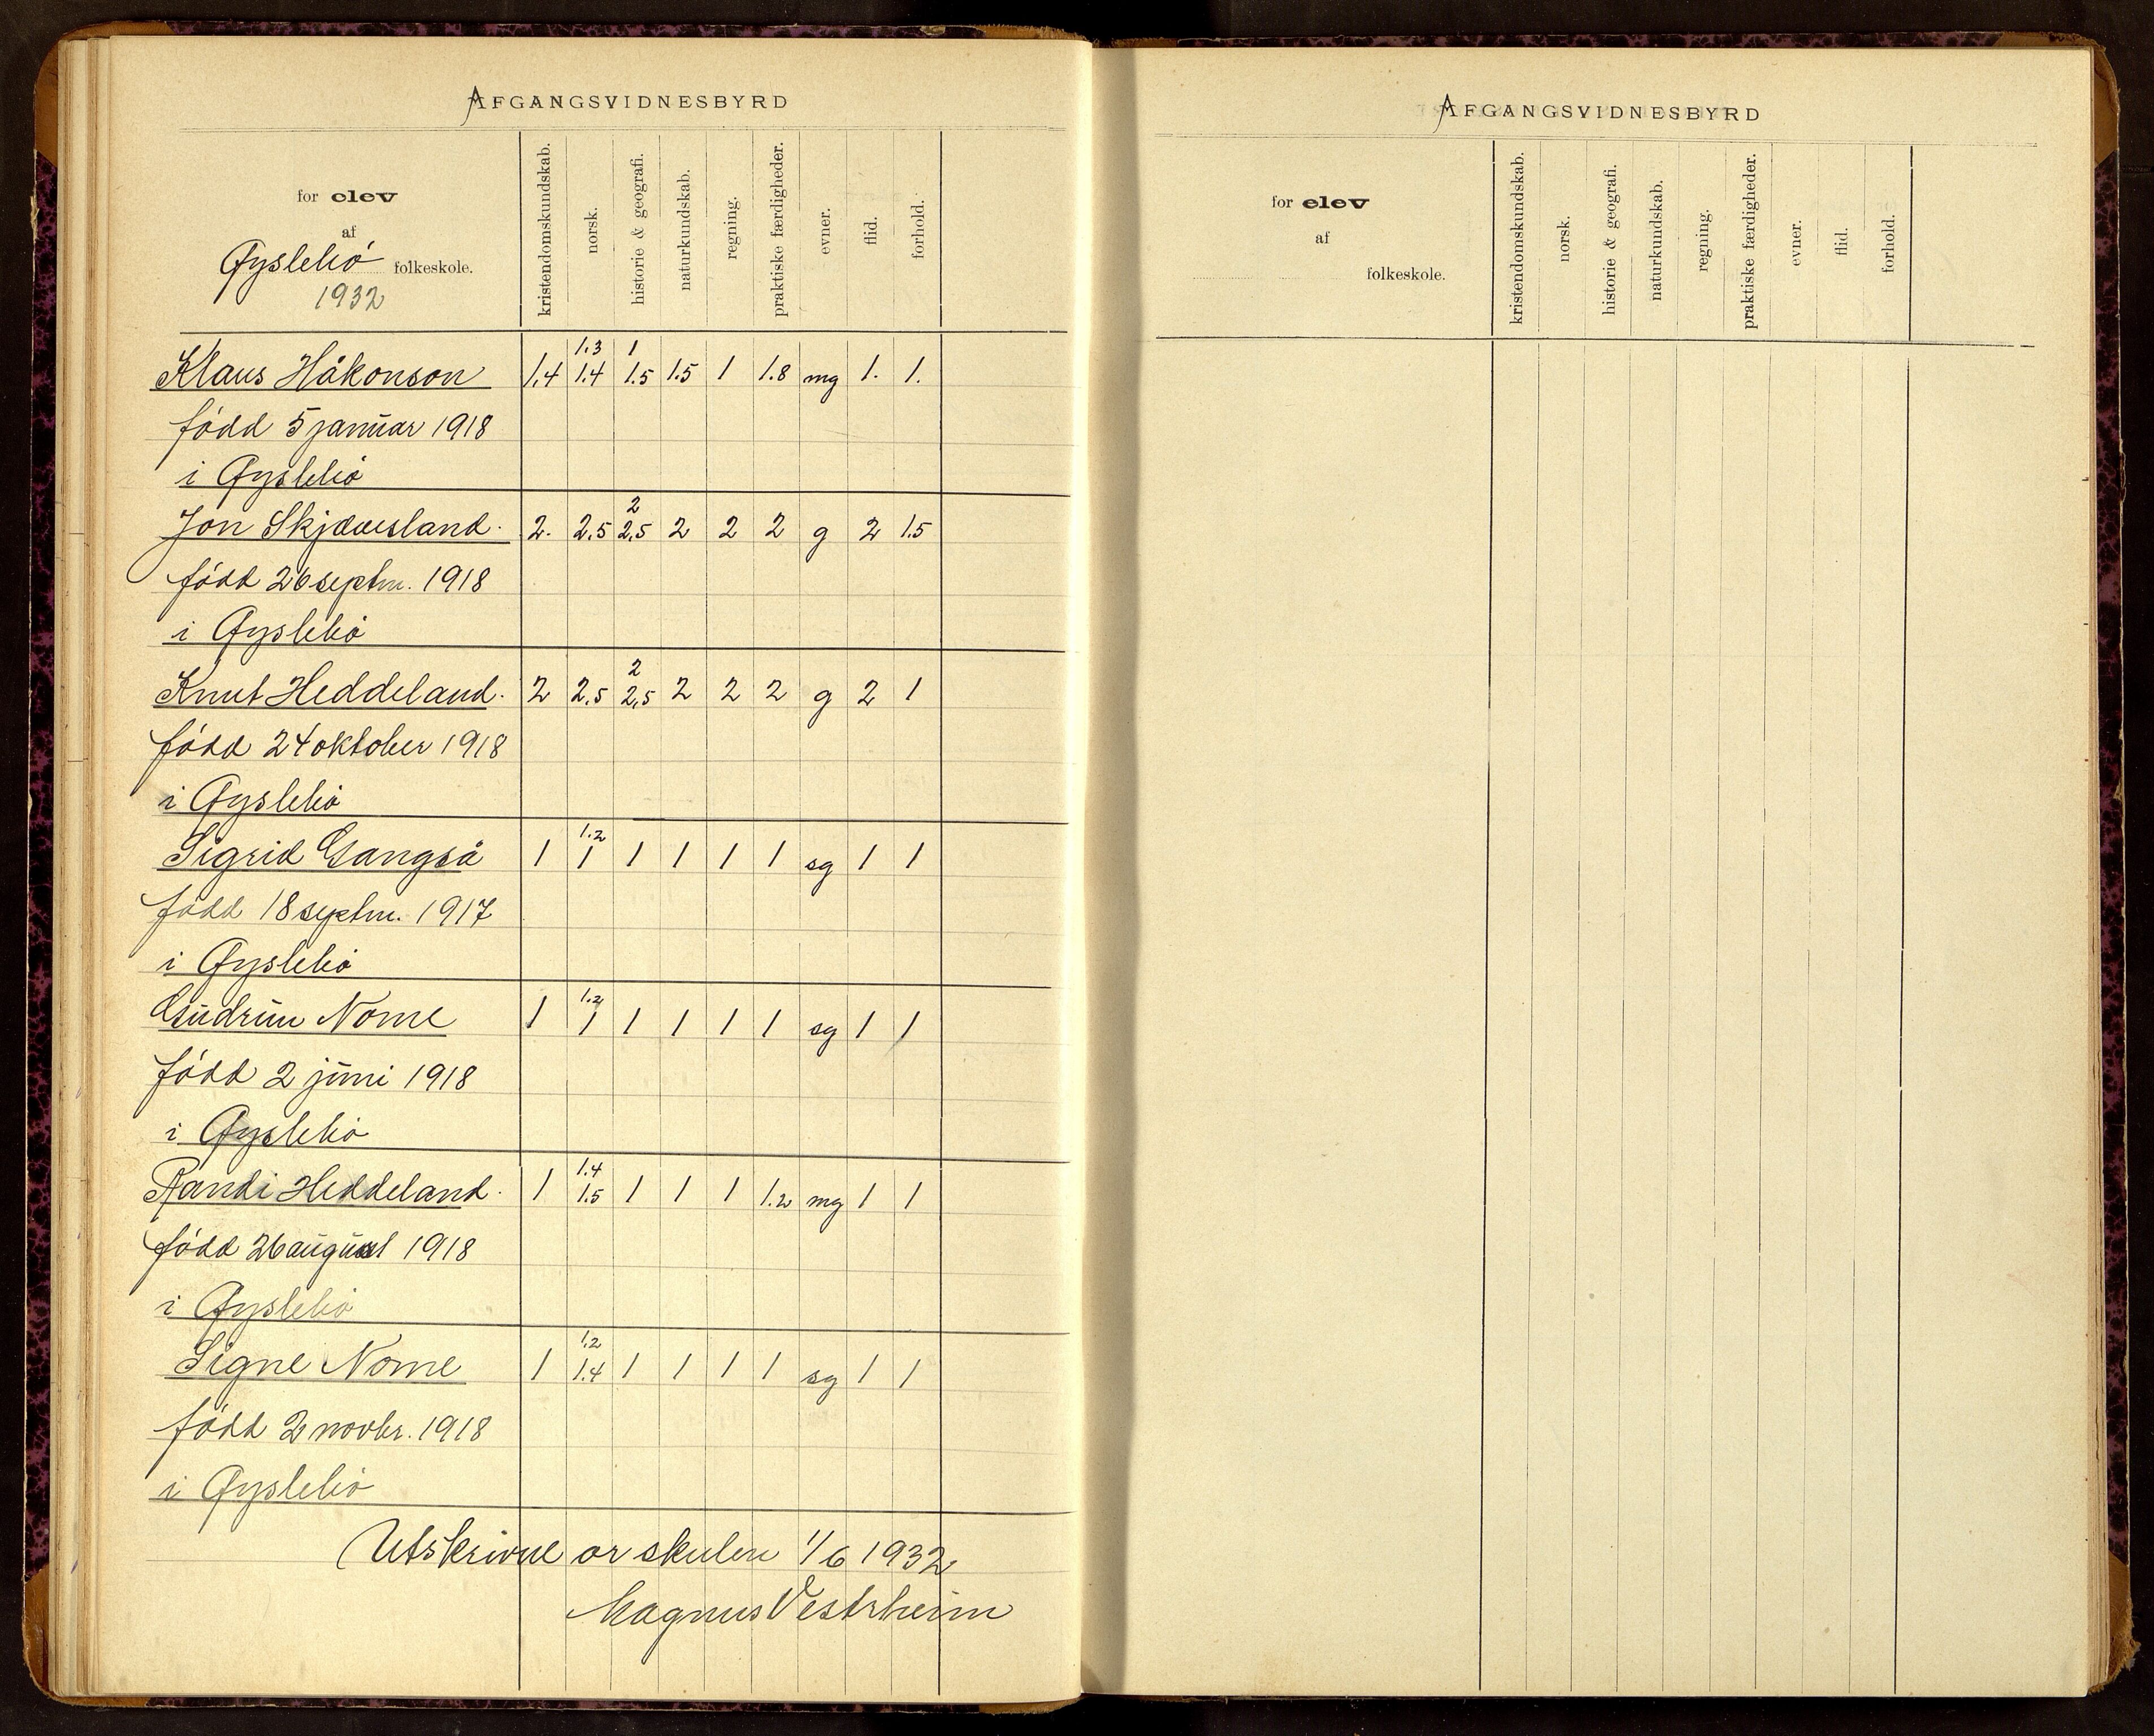 AFGANGSVIDNESBYRD
for elev
af
Øyslebö folkeskole.
1932
kristendomskundskab.
norsk.
historie & geografi.
naturkundskab.
regning.
praktiske færdigheder.
evner.
flid.
forhold.
1.3 1
Klaus Håkonson 1.4 1.4 1.5 1.5 1 1.8 mg 1. 1.
född 5 januar 1918
i Øyslebö
2
Jon Skjævesland. 2. 2.5 2,5 2 2 2 g 2 1.5
född 26 septm. 1918
i Øyslebö
2
Knut Heddeland. 2 2.5 2,5 2 2 2 g 2 1
född 24 oktober 1918
i Øyslebö
1.2
Sigrid Gangså 1 1 1 1 1 1 sg 1 1
född 18 septm. 1917
i Øyslebö
1.2
Gudrun Nome 1 1 1 1 1 1 sg 1 1
född 2 juni 1918
i Øyslebö
1.4
Randi Heddeland. 1 1.5 1 1 1 1.2 mg 1 1
född 26 august 1918
i Øyslebö
1.2
Signe Nome 1 1.4 1 1 1 1 sg 1 1
född 2 novbr. 1918
i Øyslebö
Utskrivne or skulen 1/6 1932
Magnus Vestrheim
AFGANGSVIDNESBYRD
for elev
af
folkeskole.
kristendomskundskab.
norsk.
historie & geografi.
naturkundskab.
regning.
praktiske færdigheder.
evner.
flid.
forhold.